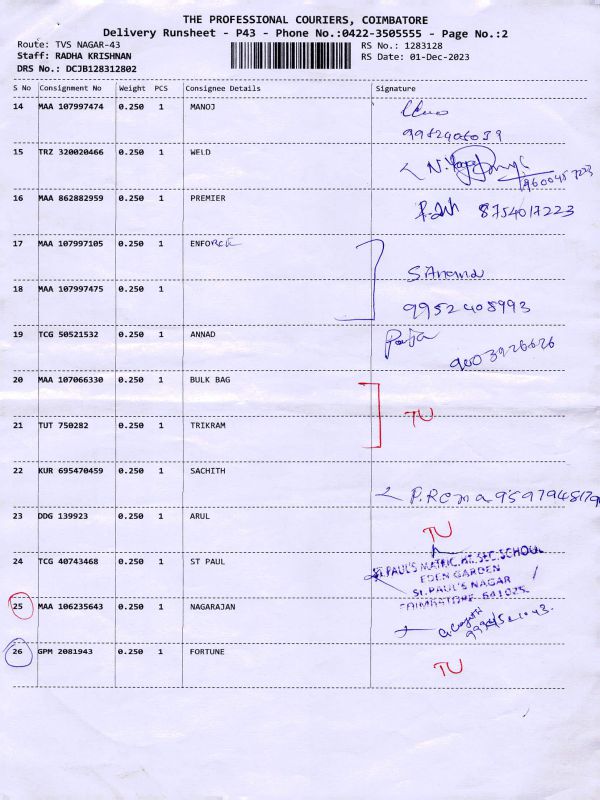 THE PROFESSIONAL COURIERS, COIMBATORE
Delivery Runsheet - P43 - Phone No.:0422-3505555 - Page No.:2
Route: TVS NAGAR-43 RS No.: 1283128
Staff: RADHA KRISHNAN RS Date: 01-Dec-2023
DRS No.: DCJB128312802
S No Consignment No Weight PCS Consignee Details Signature
14 MAA 107997474 0.250 1 MANOJ
15 TRZ 320020466 0.250 1 WELD
16 MAA 862882959 0.250 1 PREMIER 8754017223
17 MAA 107997105 0.250 1 ENFORCE
18 MAA 107997475 0.250 1
9952408993
19 TCG 50521532 0.250 1 ANNAD
9003926626
20 MAA 107066330 0.250 1 BULK BAG
TU
21 TUT 750282 0.250 1 TRIKRAM
22 KUR 695470459 0.250 1 SACHITH
23 DDG 139923 0.250 1 ARUL
TU
24 TCG 40743468 0.250 1 ST PAUL
ST.PAUL'S MATRIC.HR.SEC.SCHOOL
EDEN GARDEN
St.PAUL'S NAGAR
COIMBATORE 641025.
25 MAA 106235643 0.250 1 NAGARAJAN
26 GPM 2081943 0.250 1 FORTUNE
TU